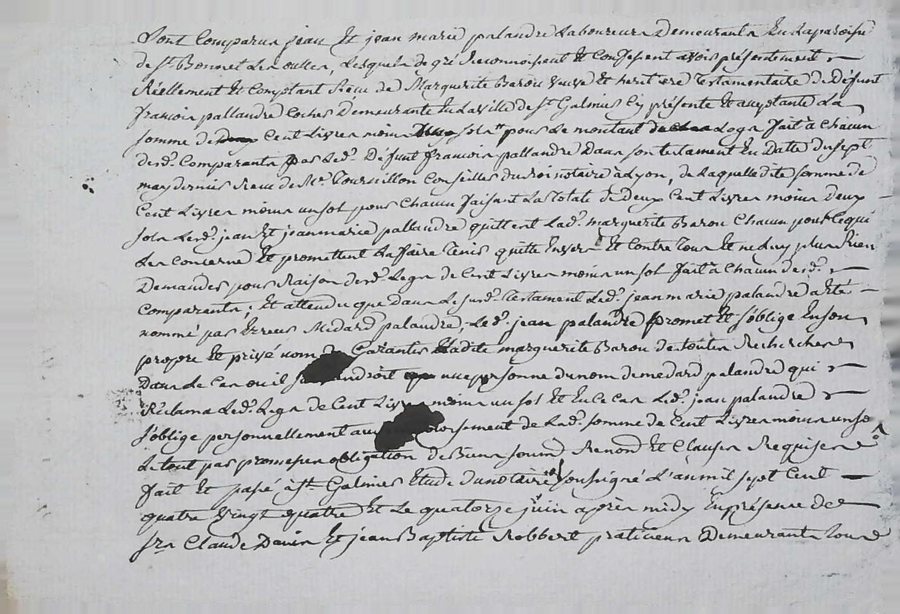 Sont Comparus jean Et jean marie palandre Laboureurs Demeurants En La paroisse
de St. Bonnet Les oulles, Lesquels de gré Reconnoissent Et Confessent avoir présentement
Réellement Et Comptant Reçu de Marguerite Baron veuve Et heritiere Testamentaire de Défunt
francois pallandre Cocher Demeurante En La ville de St. Galmier Cy présente Et aceptante La
somme de Cent Livres moins sol pour Le montant de Legs fait à Chacun
desd. Comparants par Led. Défunt francois pallandre Dans son testament En Date du sept
may dernier Reçu de Me. Tournillon Conseiller du roi notaire a Lyon, de Laquelle dite somme de
Cent Livres moins un sol pour Chacun faisant La totale de deux Cent Livres moins deux
sols Lesd. jean Et jean marie pallandre quittent Lad. marguerite Baron Chacun pour Ce qui
Les Concerne Et promettent La faire Tenir quite Envers Et Contre tous Et ne Luy plus Rien
Demander pour Raison desd. Legs de Cent Livres moins un sol fait à Chacun desd.
Comparants; Et attendu que dans Le susd. Testament Led. jean marie palandre a Eté
nommé par Erreur Médard palandre, Led. jean palandre promet Et s'oblige En son
propre Et privé nom Garantir Ladite marguerite Baron de toutes Recherches
Dans Le Cas ou il une personne du nom de medard palandre qui
Réclama Led. Legs de Cent Livres moins un sol Et En Ce Cas Led. jean palandre
s'oblige personnellement au de Lad. somme de Cent Livres moins un sol
Le tout par promesses obligation de Biens soumis Renond Et Clauses Requises
fait Et passé à St. Galmier Etude du notaire soussigné L'an mil sept Cent
quatre vingt quatre Et Le quatorze juin après midy En présence de
srs Claude Devin Et jean Baptiste Robbert praticiens Demeurants